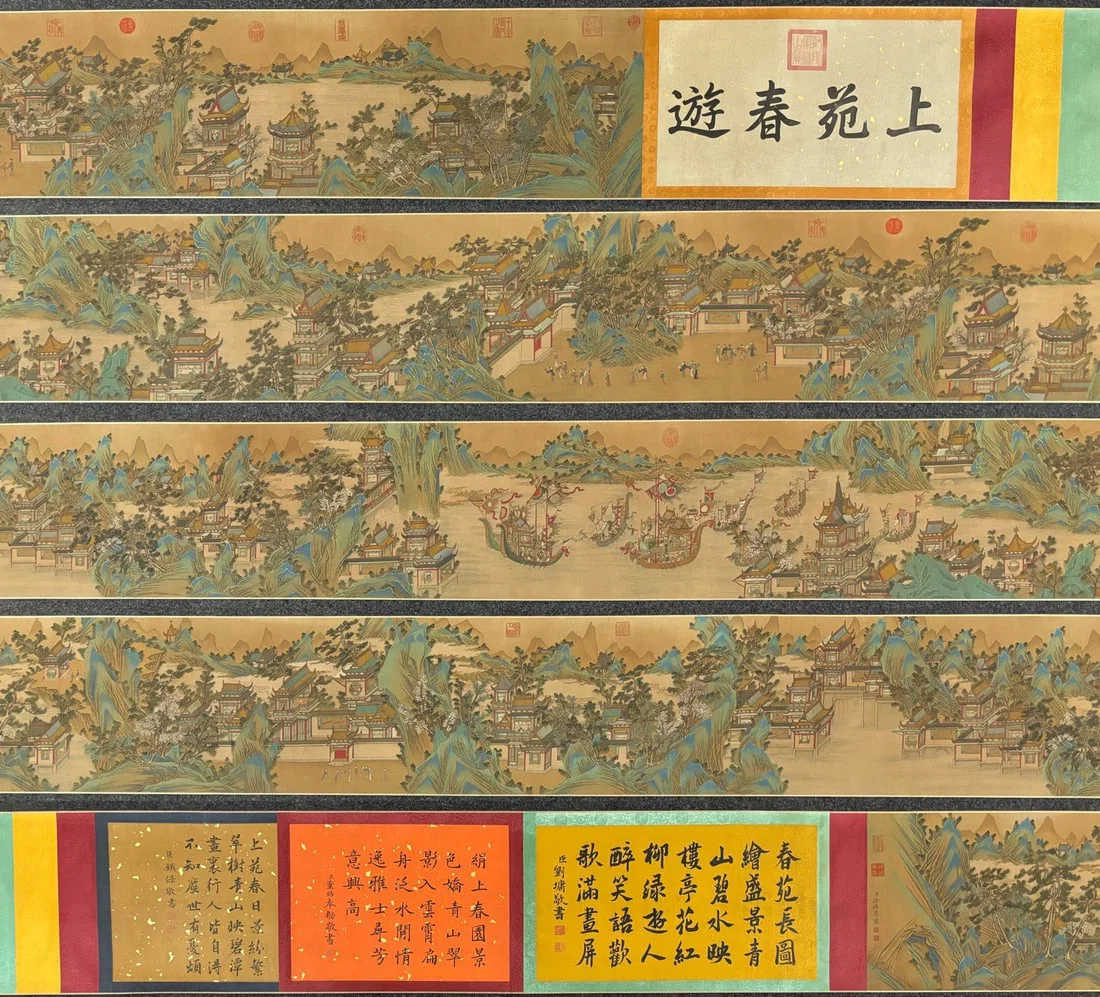 上苑春遊
春苑長圖
繪盛景青
山碧水映
樓亭花紅
柳綠遊人
醉笑語歡
歌滿畫屏
臣劉墉敬書
絹上春園景
色嬌青山翠
影入雲霄扁
舟泛水閒情
逸雅士尋芳
意興高
臣董誥奉勅敬書
上苑春日景紛繁
翠樹青山映碧潭
畫裏行人皆自得
不知塵世有憂煩
臣鐵保敬書